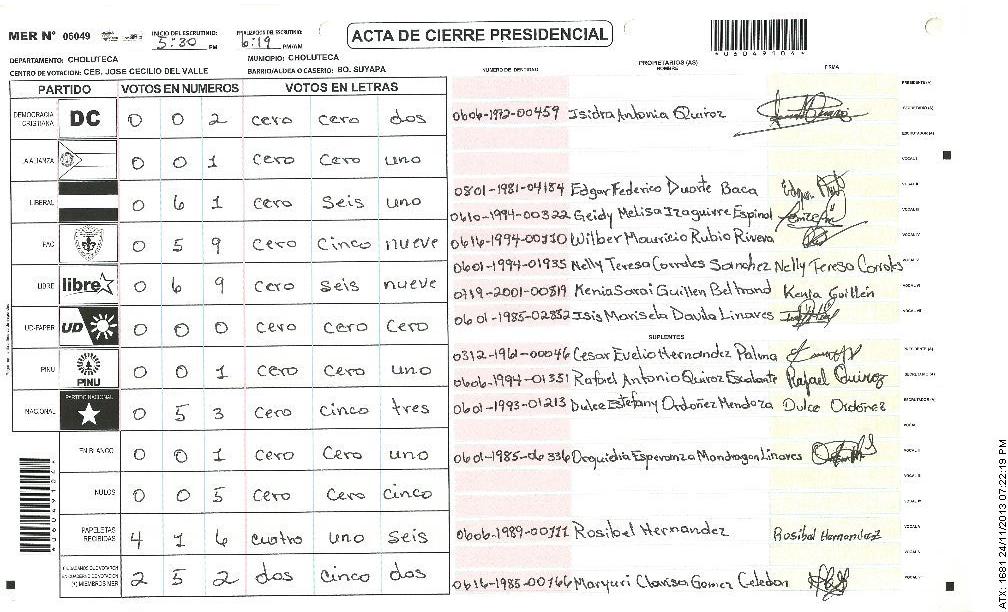 MER N° 06049 INICIO DEL ESCRUTINIO: 5:30 PM FINALIZADOS DEL ESCRUTINIO: 6:19 PM/AM ACTA DE CIERRE PRESIDENCIAL *06049104*
DEPARTAMENTO: CHOLUTECA MUNICIPIO: CHOLUTECA
CENTRO DE VOTACION: CEB. JOSE CECILIO DEL VALLE BARRIO/ALDEA O CASERIO: BO. SUYAPA
NUMERO DE IDENTIDAD PROPIETARIOS (AS) NOMBRE FIRMA
PARTIDO VOTOS EN NUMEROS VOTOS EN LETRAS
DEMOCRACIA CRISTIANA DC 0 0 2 cero cero dos
LA ALIANZA 0 0 1 cero cero uno
LIBERAL 0 6 1 cero seis uno
PAC 0 5 9 cero cinco nueve
LIBRE libre 0 6 9 cero seis nueve
UD-FAPER UD 0 0 0 cero cero cero
PINU PINU 0 0 1 cero cero uno
NACIONAL PARTIDO NACIONAL 0 5 3 cero cinco tres
EN BLANCO 0 0 1 cero cero uno
NULOS 0 0 5 cero cero cinco
PAPELETAS RECIBIDAS 4 1 6 cuatro uno seis
CIUDADANOS QUE VOTARON EN CUADERNO DE VOTACION (+) MIEMBROS MER 2 5 2 dos cinco dos
PRESIDENTE (A)
0606-1972-00459 Isidra Antonia Quiroz SECRETARIO (A)
ESCRUTADOR (A)
VOCAL I
0801-1981-04184 Edgar Federico Duarte Baca VOCAL II
0610-1994-00322 Geidy Melisa Izaguirre Espinal VOCAL III
0616-1994-00110 Wilber Mauricio Rubio Rivera VOCAL IV
0601-1994-01935 Nelly Teresa Corrales Sanchez Nelly Teresa Corrales VOCAL V
0719-2001-00819 Kenia Sarai Guillen Beltrand Kenia Guillén VOCAL VI
0601-1985-02852 Isis Marisela Davila Linares VOCAL VII
SUPLENTES
0312-1961-00046 Cesar Evelio Hernandez Palma PRESIDENTE (A)
0606-1994-01351 Rafael Antonio Quiroz Escalante Rafael Quiroz SECRETARIO (A)
0601-1993-01213 Dulce Estefany Ordoñez Mendoza Dulce Ordóñez ESCRUTADOR (A)
VOCAL I
0601-1985-06336 Orquidia Esperanza Mondragon Linares VOCAL II
0606-1989-00111 Rosibel Hernandez Rosibel Hernandez
0616-1985-00766 Maryuri Clarisa Gomez Celedon
ATX: 1681 24/11/2013 07:22:19 PM